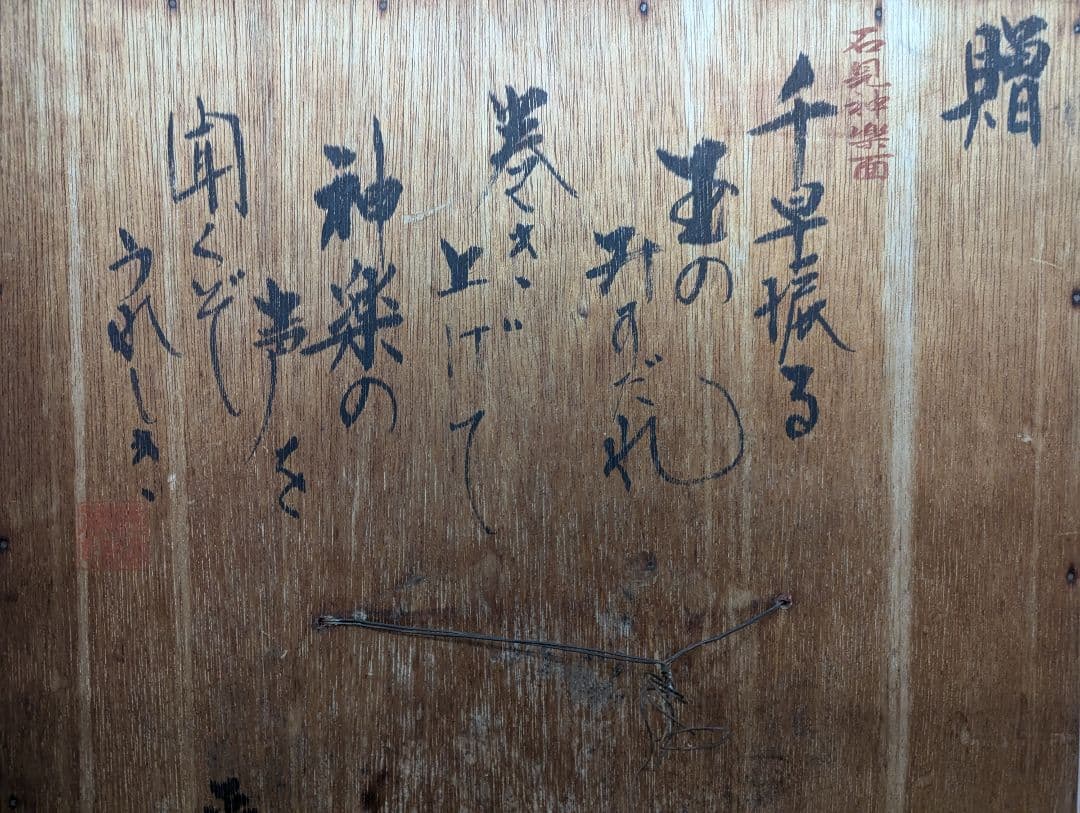 贈
石見神楽面
千早振る
玉の
みすだれ
巻き
上げて
神楽の
声を
聞くぞ
うれしき